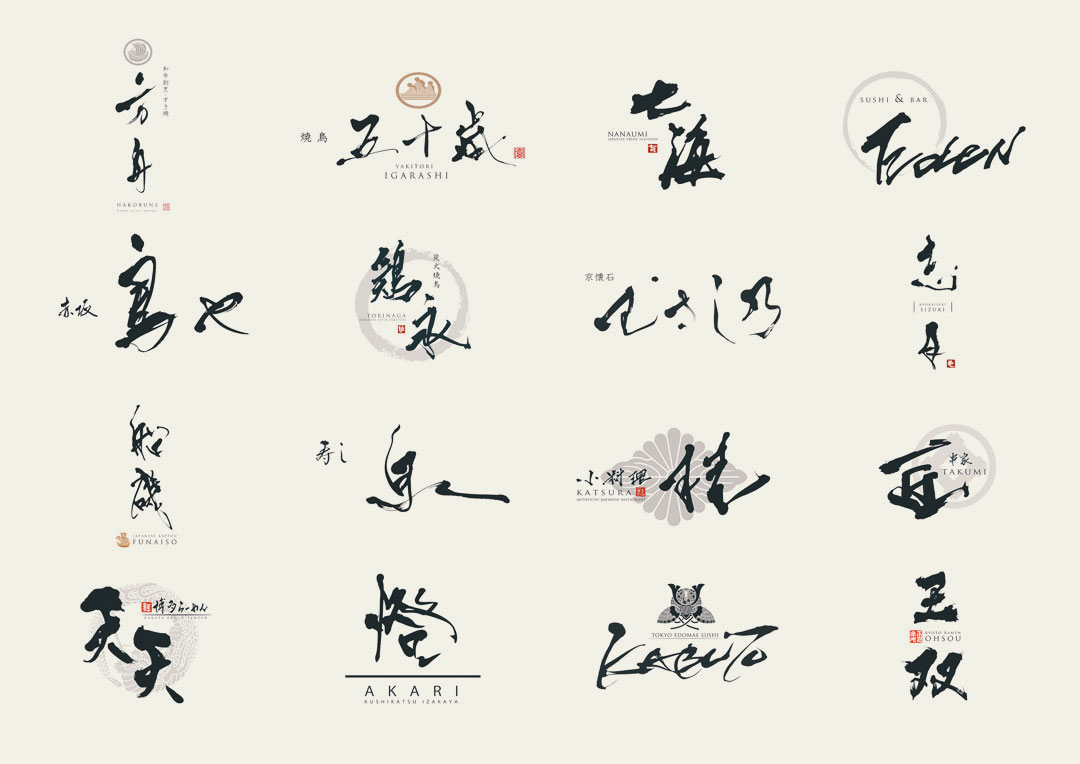 和牛割烹・すき焼
方舟
HAKOBUNE
燒鳥
五十歳
YAKITORI
IGARASHI
七海
NANAUMI
JAPANESE FRESH SEAFOODS
SUSHI & BAR
赤坂
鳥や
炭火焼鳥
鶏永
TORINAGA
JAPANESE STYLE YAKITORI
京懐石
むさし乃
志月
KYOKAISEKI
SIZUKI
船磯
JAPANESE KAPPOU
FUNAISO
寿し
小料理
桂
KATSURA
AUTHENTIC JAPANESE RESTAURANT
串家
TAKUMI
天天
博多らーめん
HAKATA RAMEN TENTEN
AKARI
KUSHIKATSU IZAKAYA
TOKYO EDOMAE SUSHI
KABUTO
王双
KYOTO RAMEN
OHSOU